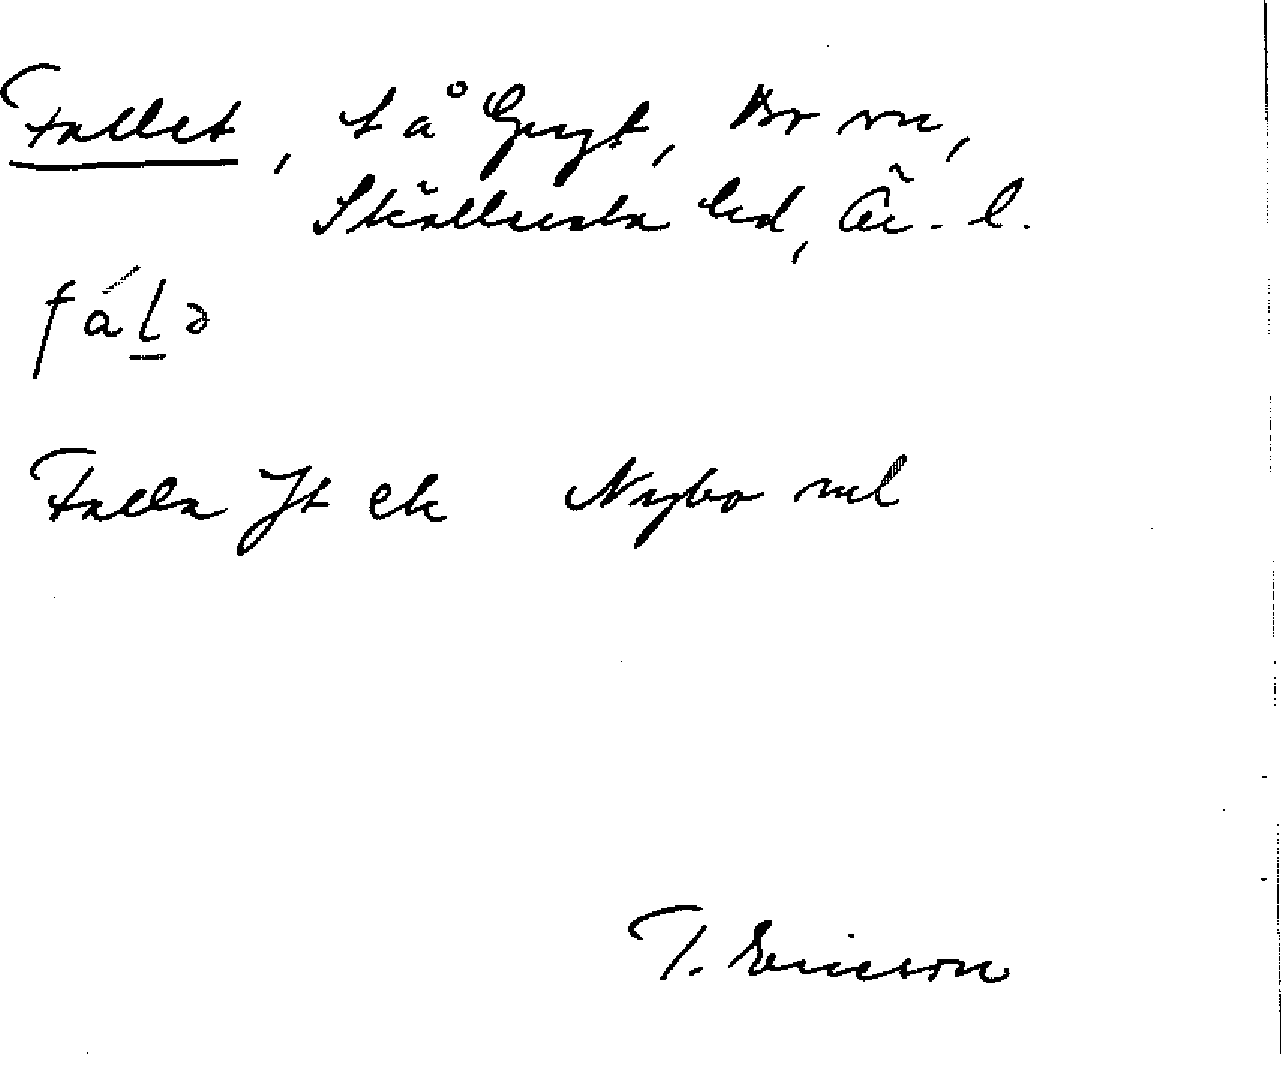 Fallet, t å Gryt, Br sn,
Skällvuola hd, Ä. l.
fáḻə
Falla Jt ek Nybo ml
T. Ericson